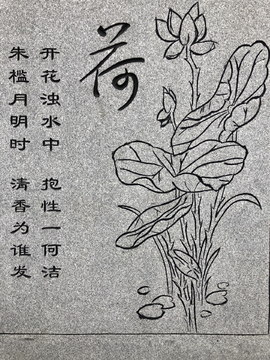 荷
开花浊水中 抱性一何洁
朱槛月明时 清香为谁发